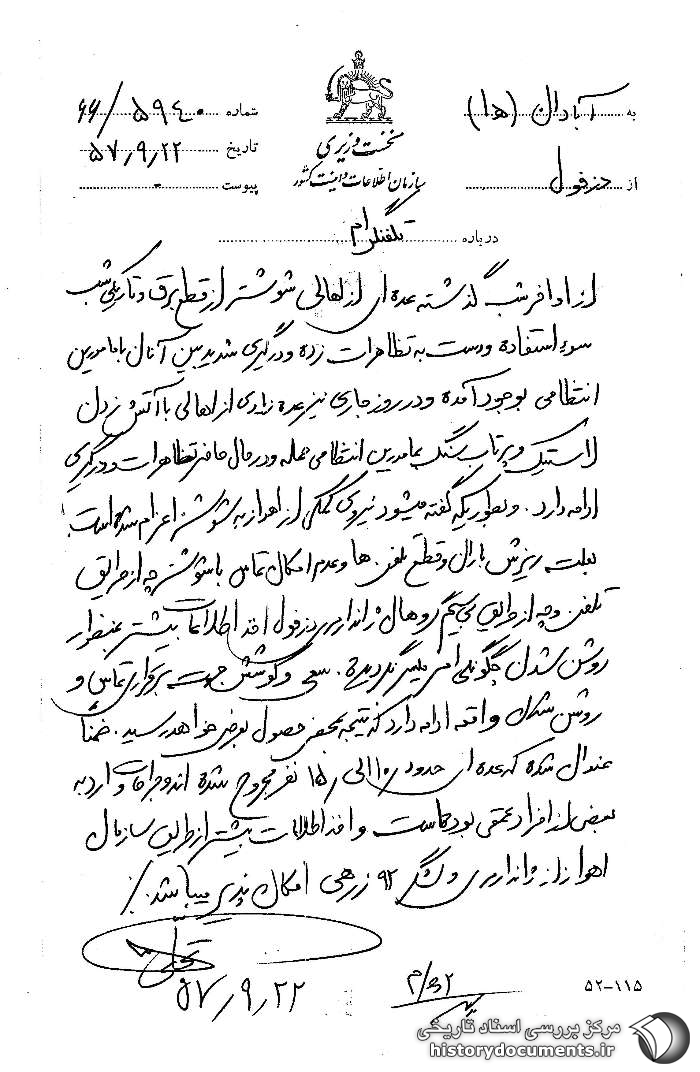 به آبادان (ه۱) شماره ۵۹۴۰/۶۶
نخست وزیری
تاریخ ۵۷،۹،۲۲
از دزفول سازمان اطلاعات و امنیت کشور پیوست -
درباره تلفنگرام
از اواخر شب گذشته عده ای از اهالی شوشتر از قطع برق و تاریکی شب
سوء استفاده و دست به تظاهرات زده و درگیری شدید بین آنان با مامورین
انتظامی بوجود آمده و در روز جاری نیز عده زیادی از اهالی با آتش زدن
لاستیک و پرتاب سنگ بمامورین انتظامی حمله و در حال حاضر تظاهرات و درگیری
ادامه دارد. و بطوریکه گفته میشود نیروی کمکی از اهواز به شوشتر اعزام شده است.
بعلت ریزش باران و قطع تلفن ها و عدم امکان تماس با شوشتر چه از طریق
تلفن و چه از طریق بیسیم گروهان ژاندارمری دزفول اخذ اطلاعات بیشتر بمنظور
روشن شدن چگونگی امر میسر نگردیده. سعی و کوشش جهت برقراری تماس و
روشن شدن واقعه ادامه دارد که نتیجه بمحض حصول بعرض خواهد رسید. ضمناً
عنوان شده که عده ای حدود ۱۰ الی ۱۵ نفر مجروح شده اند و جراحات وارده به
بعضی از افراد عمقی بوده است و اخذ اطلاعات بیشتر از طریق سازمان
اهواز از ژاندارمری و لشگر ۹۲ زرهی امکان پذیر میباشد./
۵۷،۹،۲۲
۵۲-۱۱۵
مرکز بررسی اسناد تاریخی
historydocuments.ir